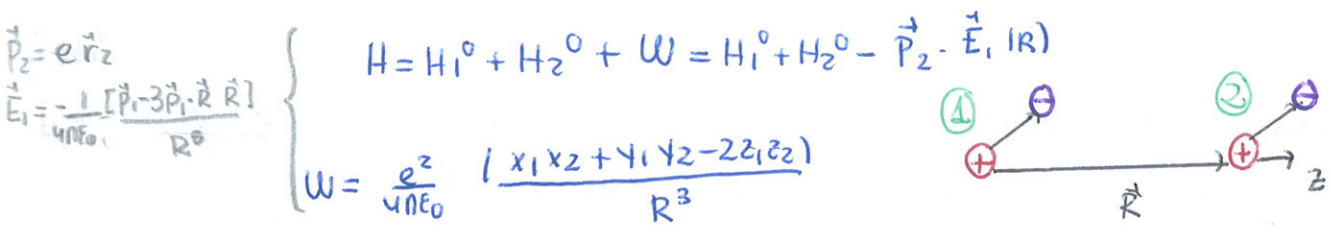 P⃗₂ = e r⃗₂
E⃗₁ = -1/(4πε₀) [P⃗₁ - 3P⃗₁·R⃗ R⃗]/R⁵
H = H₁⁰ + H₂⁰ + W = H₁⁰ + H₂⁰ - P⃗₂ · E⃗₁ (R)
W = e²/(4πε₀) (x₁x₂ + y₁y₂ - 2z₁z₂)/R³
① - ② -
+ + z
R⃗